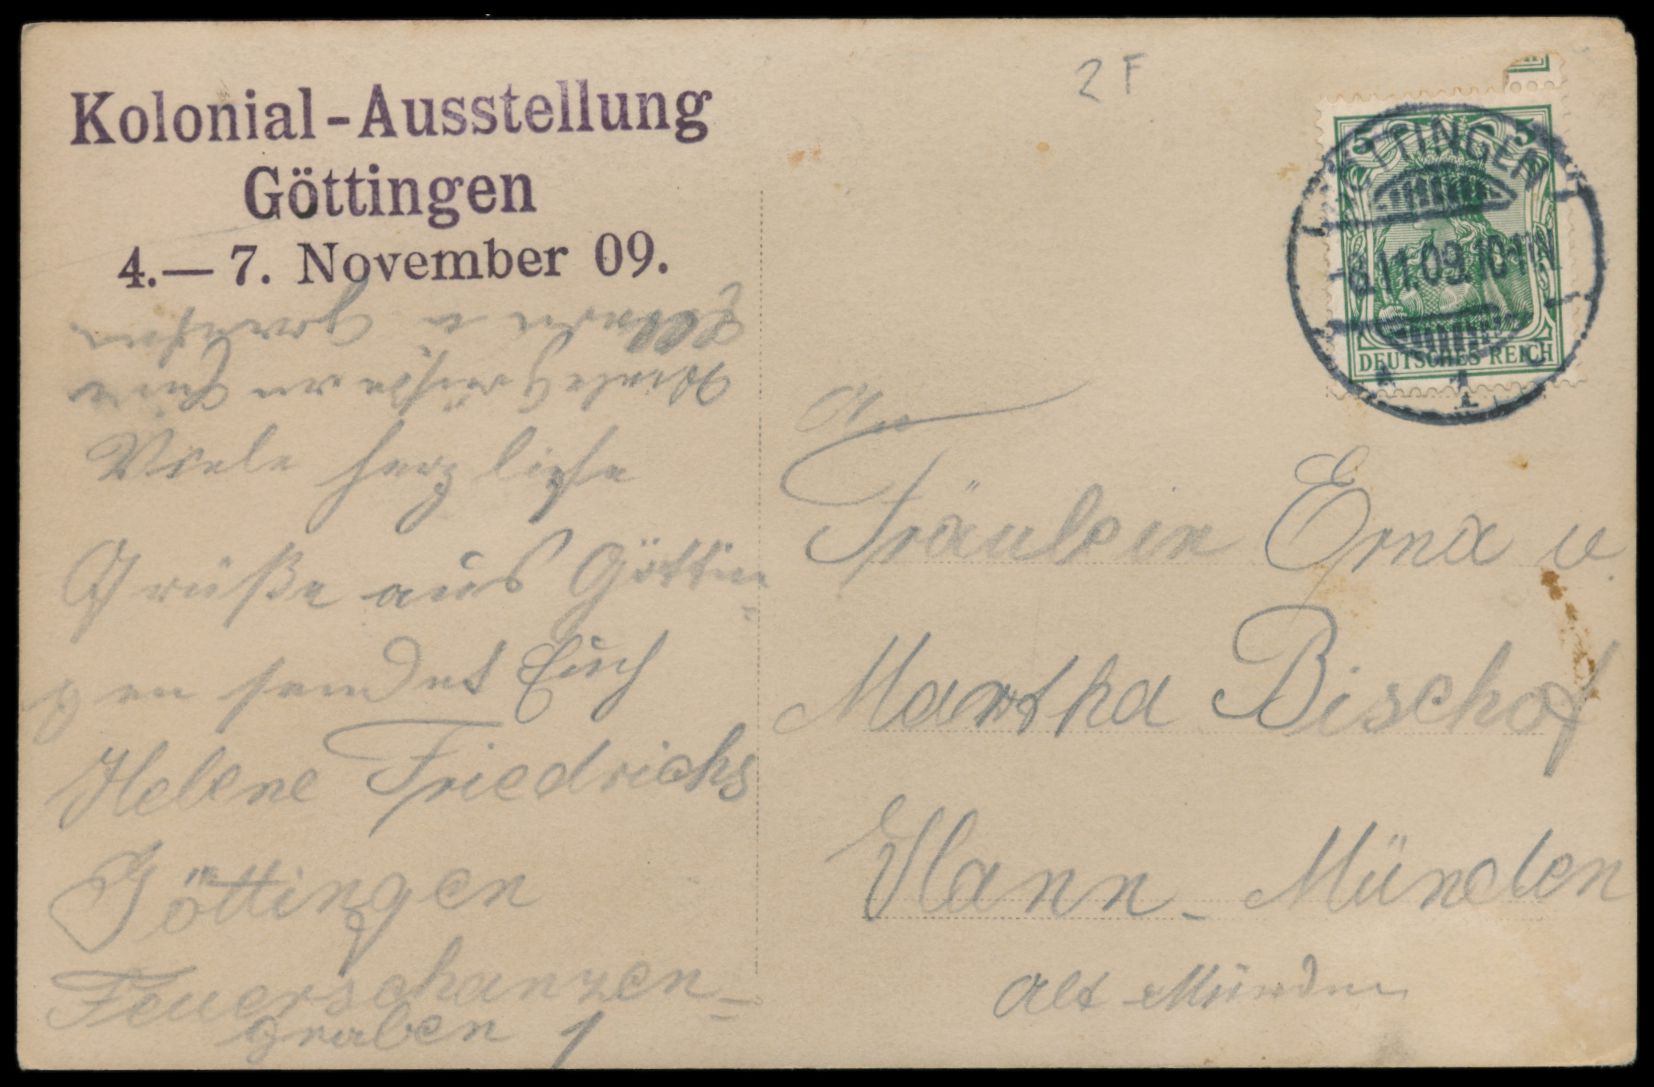 Kolonial-Ausstellung
Göttingen
4.— 7. November 09.
2 F
5 5
GÖTTINGEN
6.11.09.10-11N
1
DEUTSCHES REICH
Viele Grüße
Viele herzliche
Grüße aus Göttin-
gen sendet Euch
Helene Friedrichs
Göttingen
Feuerschanzen-
graben 1
An
Fräulein Erna u.
Martha Bischof
Hann-Münden
Alt Münden